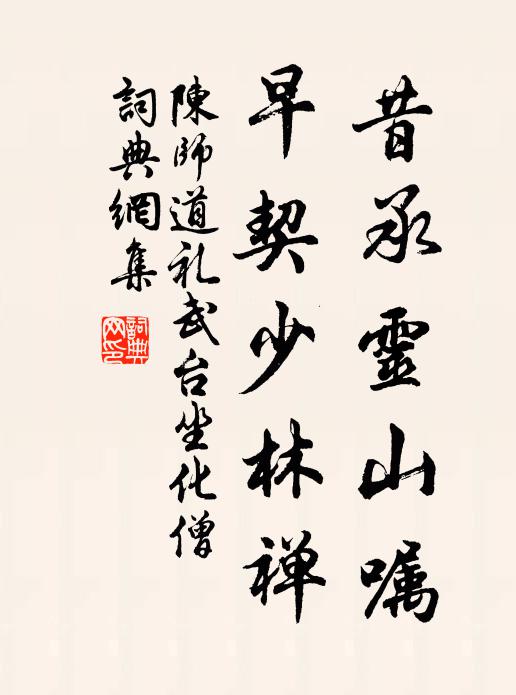 昔承靈山嘱
早契少林禅
陳師道礼武台坐化僧
詞典網集
詞典
网印